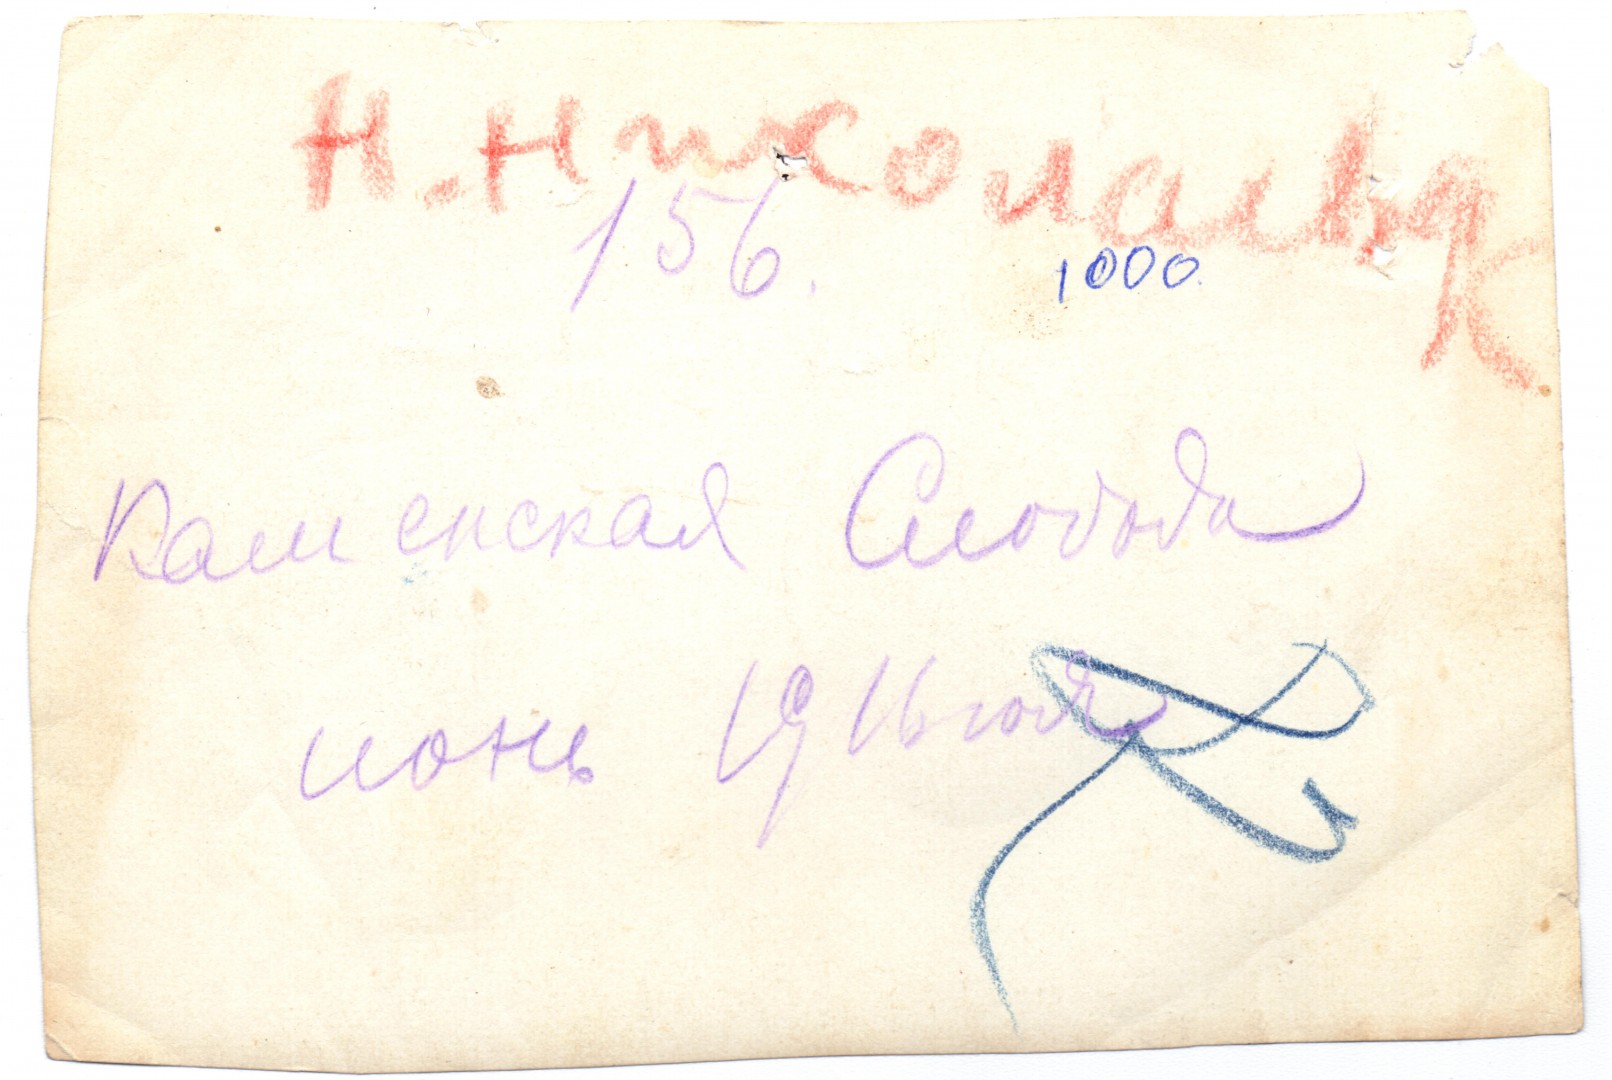 Н. Николаевк
156.
1000
Каменская Слобода
июнь 1916 года